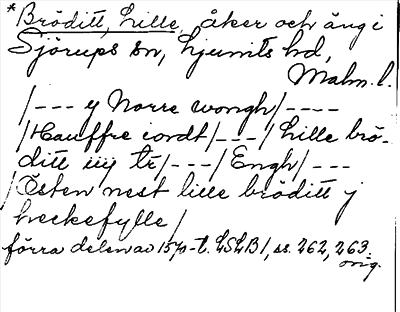 *Bröditt, Lille, åker och äng i
Sjörups sn, Ljunits hd,
Malm. l.
/--- y Norre wongh/----
/Hauffre iordt/---/Lille brö-
ditt iiij te/---/Engh/---
/Östen nest lille bröditt j
heckefylle/
förra delen av 1570-t. LSLB1, ss. 262, 263.
orig.